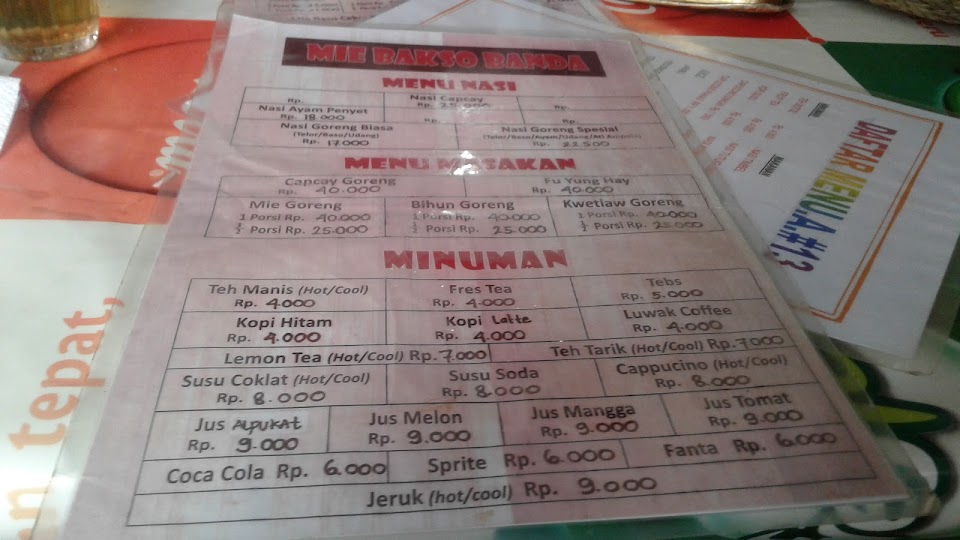 MIE BAKSO BANDA
MENU NASI
Rp.
Nasi Capcay
Rp. 25.000
Rp.
Nasi Ayam Penyet
Rp. 18.000
Rp.
Rp.
Nasi Goreng Biasa
(Telor/Baso/Udang)
Rp. 17.000
Nasi Goreng Spesial
Rp. 22.500
MENU MASAKAN
Capcay Goreng
Rp. 40.000
Fu Yung Hay
Rp. 40.000
Mie Goreng
1 Porsi Rp. 40.000
½ Porsi Rp. 25.000
Bihun Goreng
1 Porsi Rp. 40.000
½ Porsi Rp. 25.000
Kwetiaw Goreng
1 Porsi Rp. 40.000
½ Porsi Rp. 25.000
MINUMAN
Teh Manis (Hot/Cool)
Rp. 4.000
Fres Tea
Rp. 4.000
Tebs
Rp. 5.000
Kopi Hitam
Rp. 4.000
Kopi Latte
Rp. 4.000
Luwak Coffee
Rp. 4.000
Lemon Tea (Hot/Cool) Rp. 7.000
Teh Tarik (Hot/Cool) Rp. 7.000
Susu Coklat (Hot/Cool)
Rp. 8.000
Susu Soda
Rp. 8.000
Cappucino (Hot/Cool)
Rp. 8.000
Jus ALPUKAT
Rp. 9.000
Jus Melon
Rp. 9.000
Jus Mangga
Rp. 9.000
Jus Tomat
Rp. 9.000
Coca Cola Rp. 6.000
Sprite Rp. 6.000
Fanta Rp. 6.000
Jeruk (hot/cool) Rp. 9.000
DAFTAR MENU.A.#13
tepat,